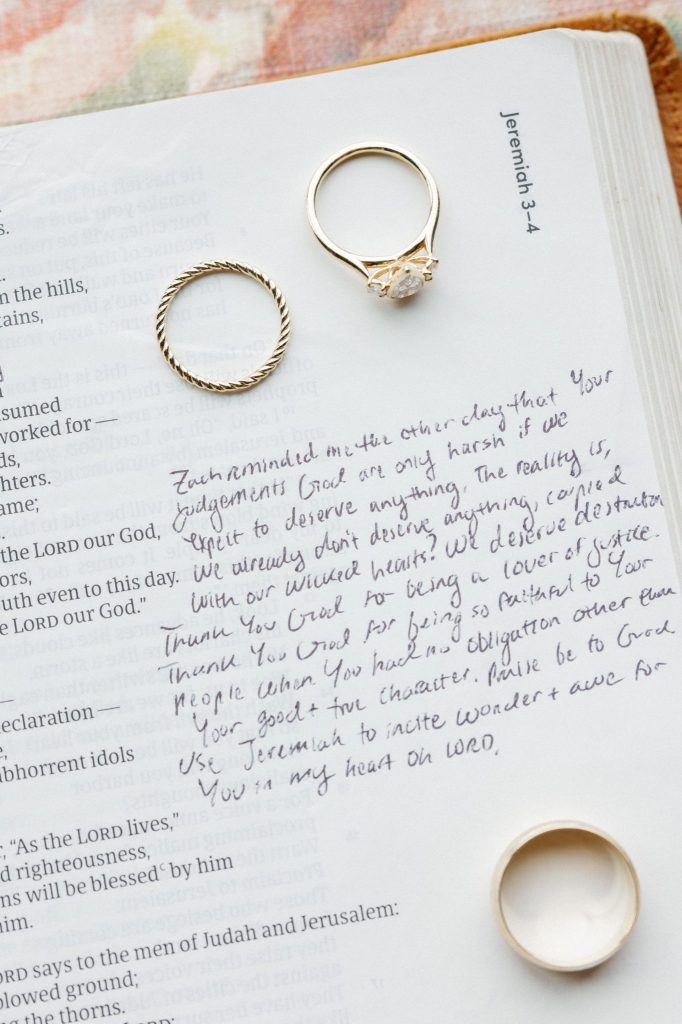 Jeremiah 3–4
s.
n the hills,
tains,
nsumed
worked for —
ds,
ghters.
ame;
the LORD our God,
ors,
uth even to this day.
e LORD our God."
Zach reminded me the other day that Your
judgements God are only harsh if we
expect to deserve anything. The reality is,
we already don't deserve anything, coupled
with our wicked hearts? We deserve destruction
Thank You God for being a lover of justice.
Thank You God for being so faithful to Your
people when You had no obligation other than
Your good + true character. Praise be to God
Use Jeremiah to incite wonder + awe for
You in my heart Oh LORD.
—
eclaration —
e,
bhorrent idols
; "As the LORD lives,"
d righteousness,
ns will be blessedᶜ by him
him.
ORD says to the men of Judah and Jerusalem:
plowed ground;
ng the thorns.